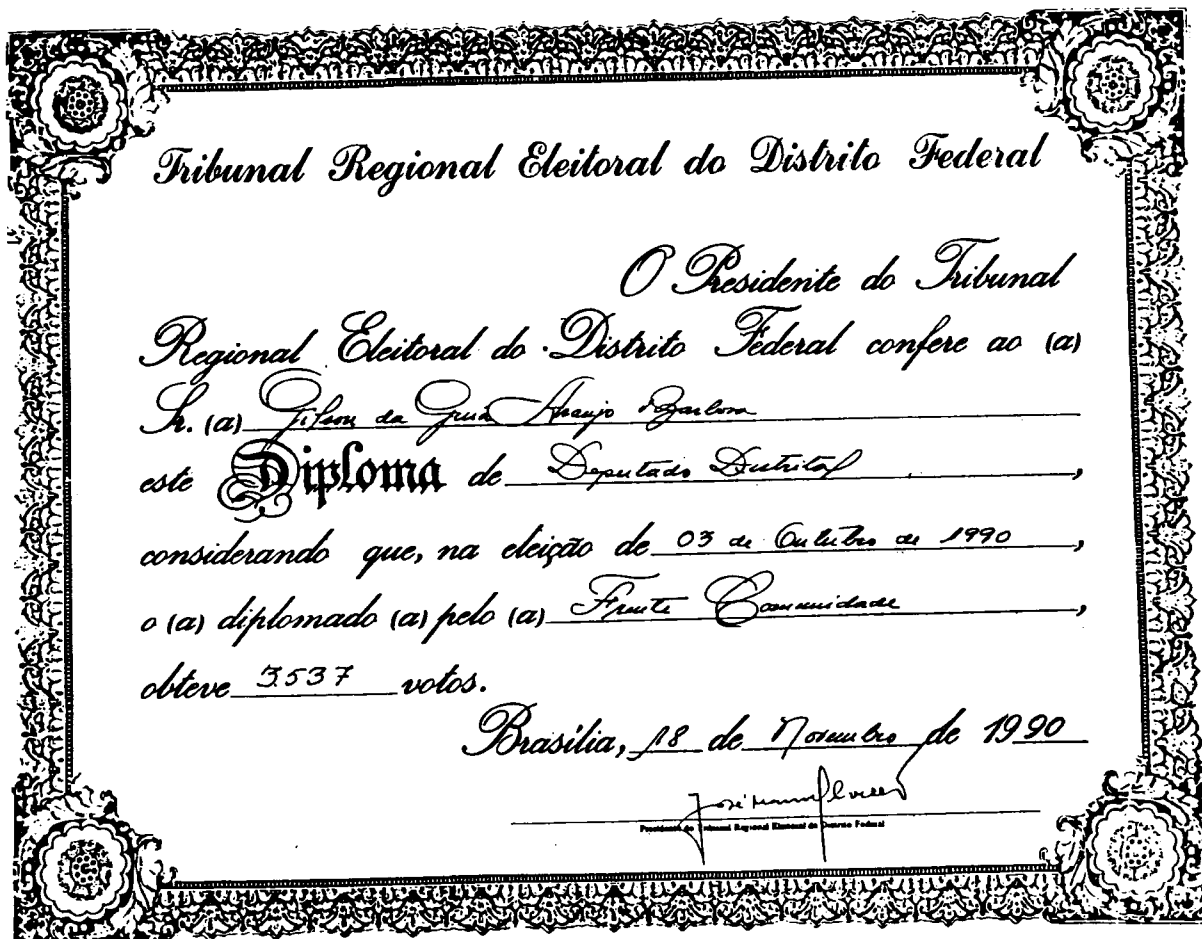 Tribunal Regional Eleitoral do Distrito Federal
O Presidente do Tribunal
Regional Eleitoral do Distrito Federal confere ao (a)
Sr. (a) Gilson da Araujo
este Diploma de Deputado Distrital,
considerando que, na eleição de 03 de Outubro de 1990,
o (a) diplomado (a) pelo (a) Frente Comunidade,
obteve 3.537 votos.
Brasília, 18 de Novembro de 1990
José
Presidente do Tribunal Regional Eleitoral do Distrito Federal